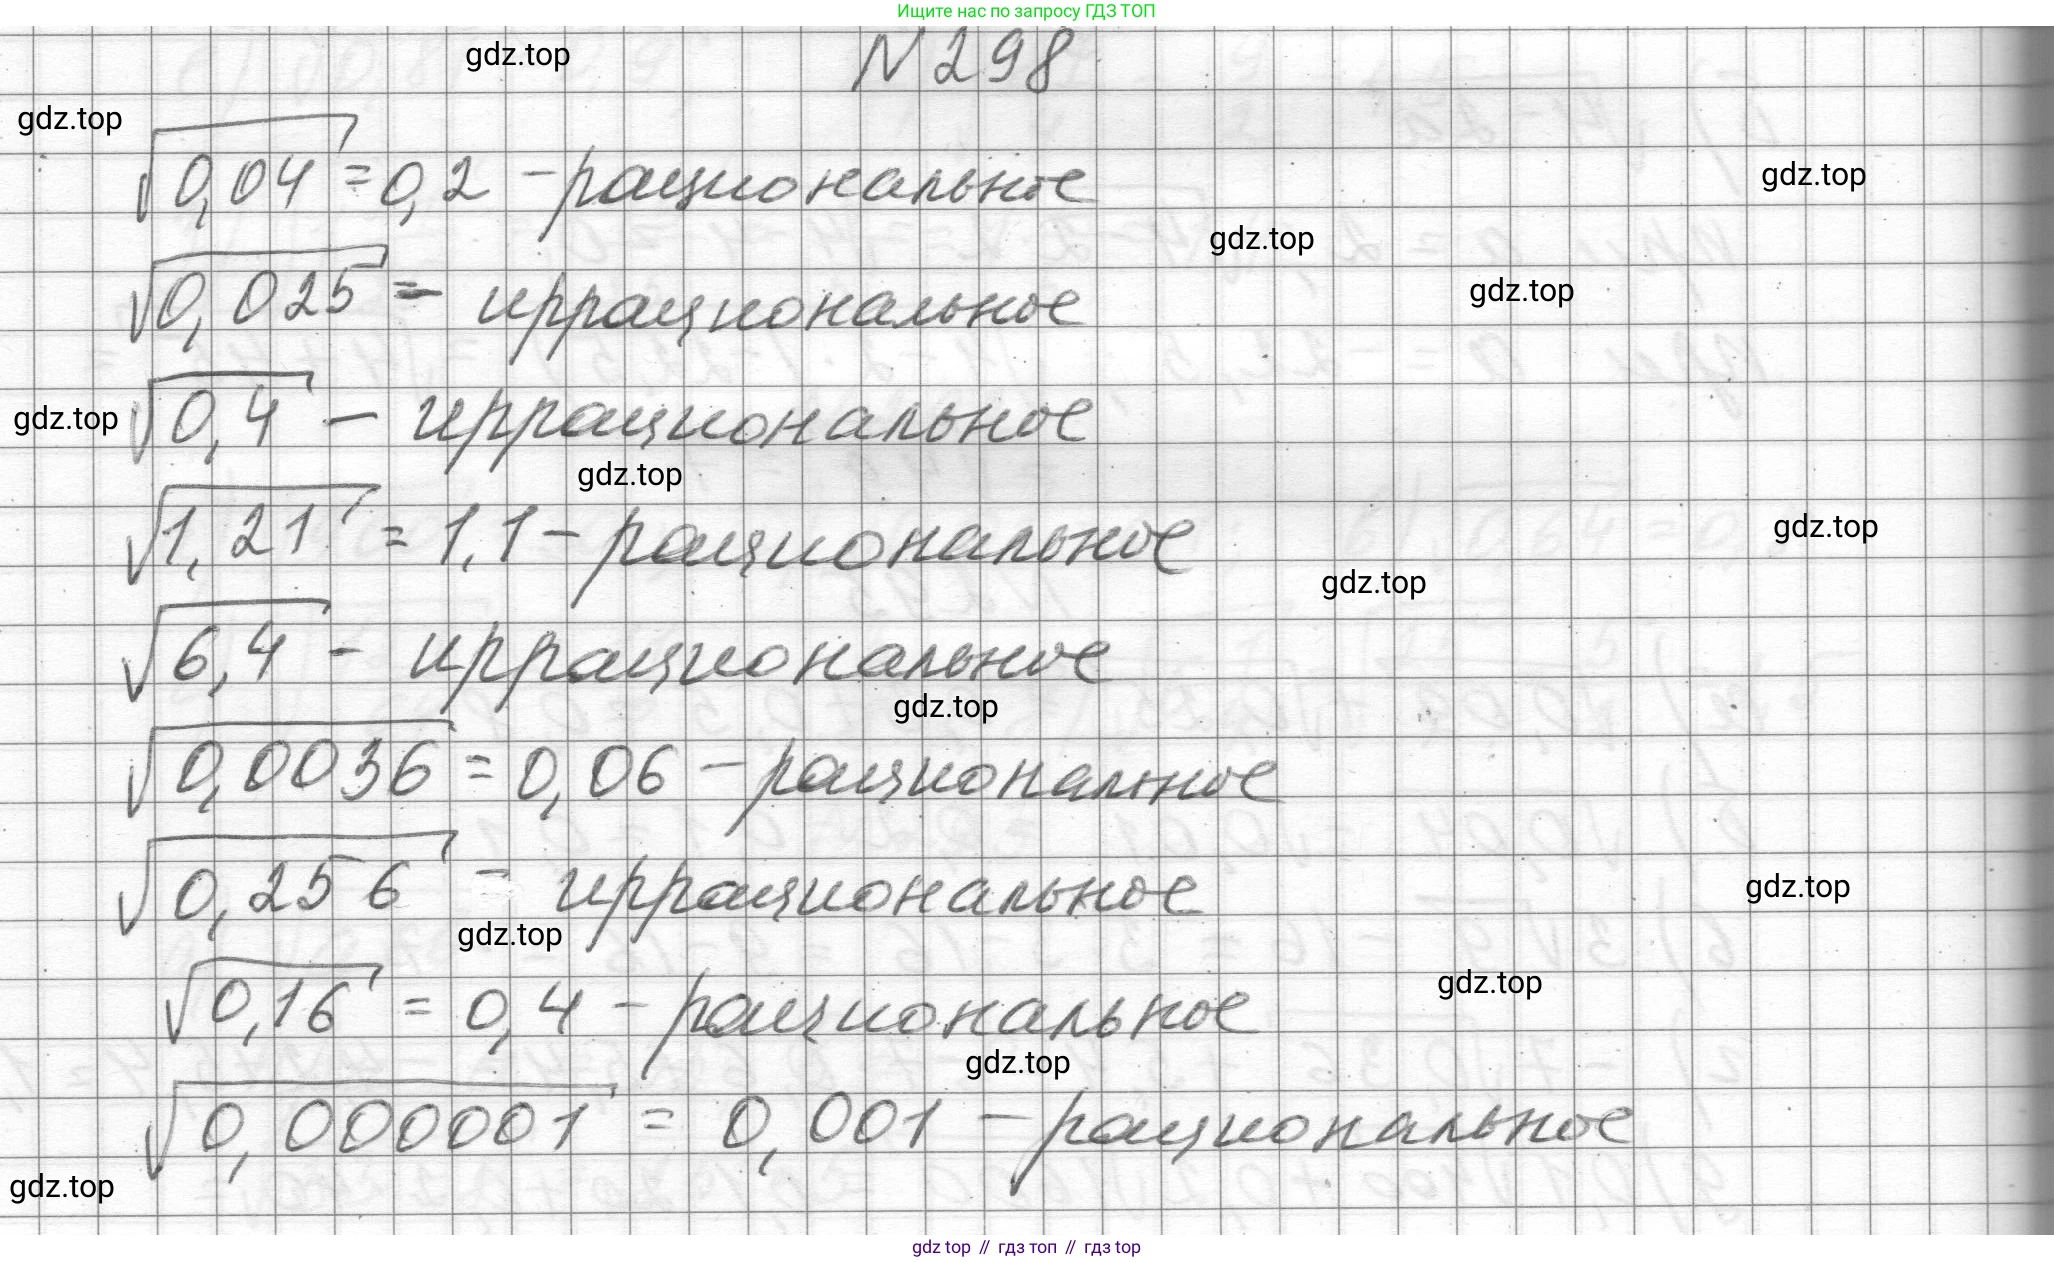 Ищите нас по запросу ГДЗ ТОП
gdz.top
N 298
gdz.top
√0,04 = 0,2 - рациональное
gdz.top
gdz.top
√0,025 - иррациональное
gdz.top
√0,4 - иррациональное
gdz.top
gdz.top
√1,21 = 1,1 - рациональное
gdz.top
gdz.top
√6,4 - иррациональное
gdz.top
√0,0036 = 0,06 - рациональное
√0,256 - иррациональное
gdz.top
gdz.top
√0,16 = 0,4 - рациональное
gdz.top
gdz.top
√0,000001 = 0,001 - рациональное
gdz.top
gdz top // гдз топ // гдз top